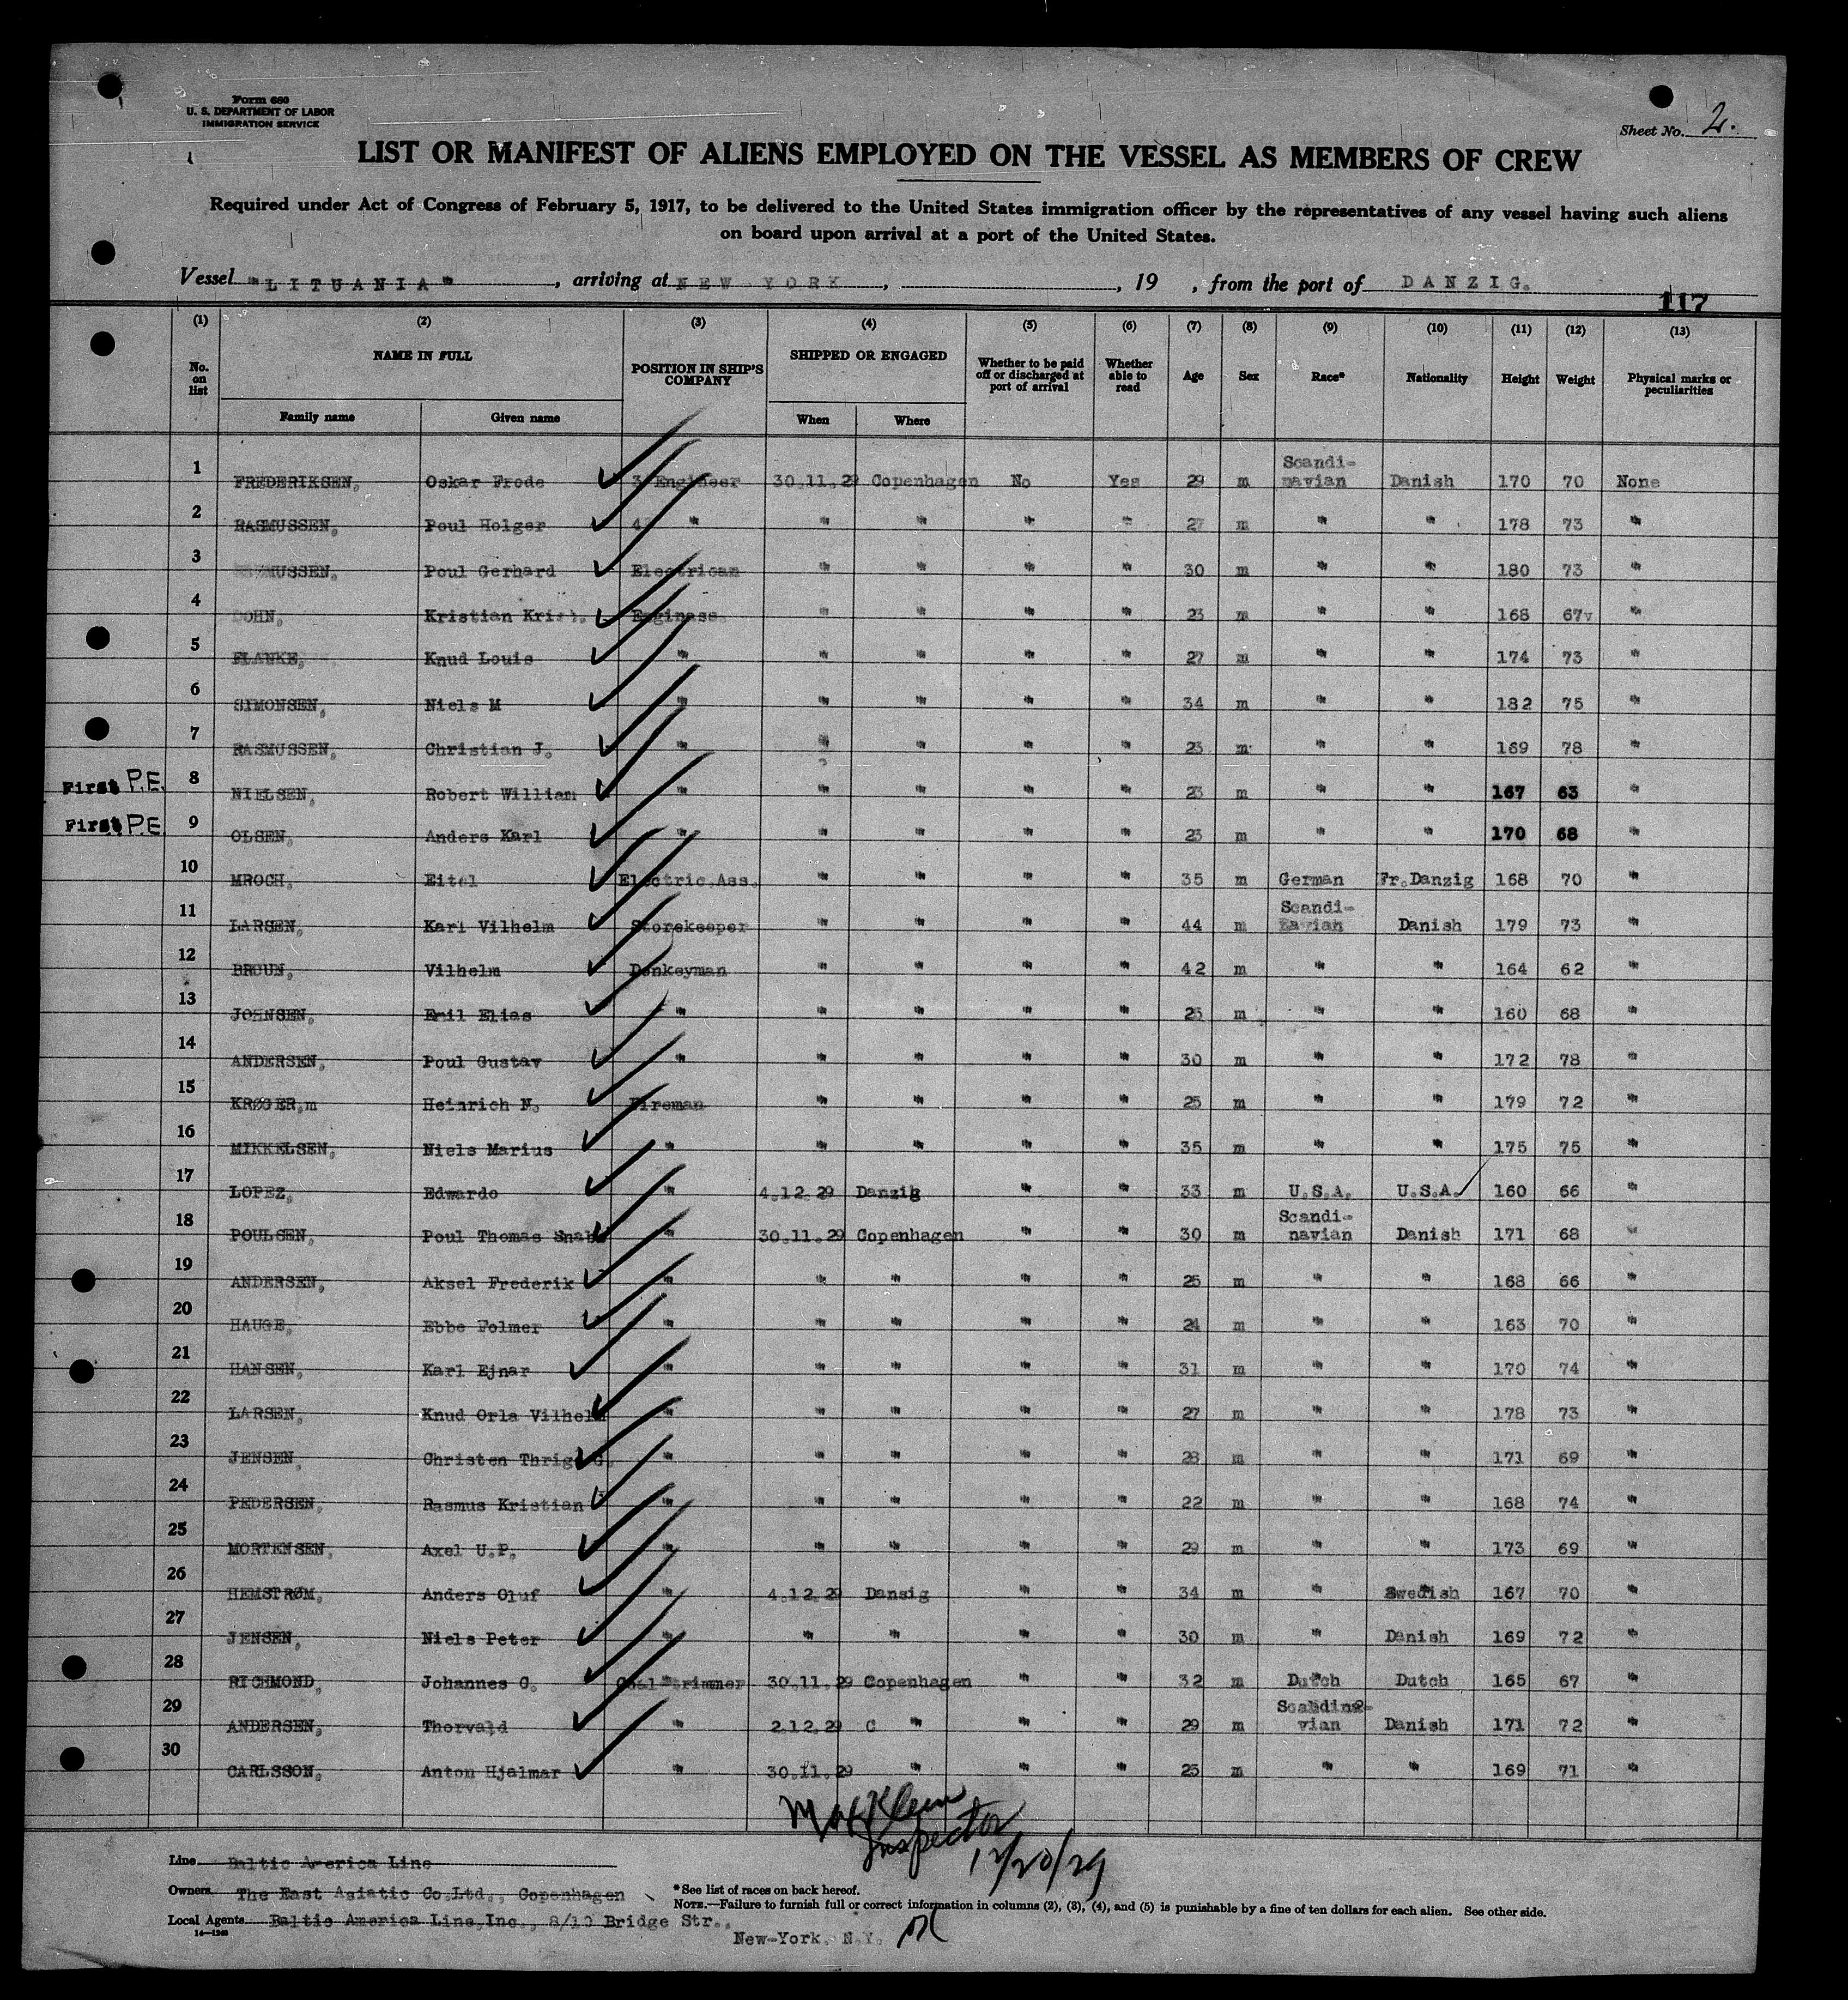 Form 680
U. S. DEPARTMENT OF LABOR
IMMIGRATION SERVICE
Sheet No. 2.
LIST OR MANIFEST OF ALIENS EMPLOYED ON THE VESSEL AS MEMBERS OF CREW
Required under Act of Congress of February 5, 1917, to be delivered to the United States immigration officer by the representatives of any vessel having such aliens
on board upon arrival at a port of the United States.
Vessel "LITUANIA" , arriving at NEW YORK , , 19 , from the port of DANZIG.
117
(1) (2) (3) (4) (5) (6) (7) (8) (9) (10) (11) (12) (13)
No. on list NAME IN FULL POSITION IN SHIP'S COMPANY SHIPPED OR ENGAGED Whether to be paid off or discharged at port of arrival Whether able to read Age Sex Race* Nationality Height Weight Physical marks or peculiarities
Family name Given name When Where
1 FREDERIKSEN, Oskar Frode 3 Engineer 30.11.29 Copenhagen No Yes 29 m Scandi-navian Danish 170 70 None
2 RASMUSSEN, Poul Holger 4 " " " " " 27 m " " 178 73 "
3 RASMUSSEN, Poul Gerhard Electrican " " " " 30 m " " 180 73 "
4 DOHN, Kristian Krist. Enginass. " " " " 23 m " " 168 67 "
5 FLANKE, Knud Louis " " " " " 27 m " " 174 73 "
6 SIMONSEN, Niels M " " " " " 34 m " " 182 75 "
7 RASMUSSEN, Christian J. " " " " " 23 m " " 169 78 "
First P.E. 8 NIELSEN, Robert William " " " " " 23 m " " 167 63 "
First P.E 9 OLSEN, Anders Karl " " " " " 23 m " " 170 68 "
10 MROCH, Eitel Electric.Ass. " " " " 35 m German Fr.Danzig 168 70 "
11 LARSEN, Karl Vilhelm Storekeeper " " " " 44 m Scandi-navian Danish 179 73 "
12 BRUUN, Vilhelm Donkeyman " " " " 42 m " " 164 62 "
13 JOHNSEN, Emil Elias " " " " " 25 m " " 160 68 "
14 ANDERSEN, Poul Gustav " " " " " 30 m " " 172 78 "
15 KRØGER,m Heinrich N. Fireman " " " " 25 m " " 179 72 "
16 MIKKELSEN, Niels Marius " " " " " 35 m " " 175 75 "
17 LOPEZ, Edwardo " 4.12.29 Danzig " " 33 m U.S.A. U.S.A. 160 66 "
18 POULSEN, Poul Thomas 30.11.29 Copenhagen " " 30 m Scandi-navian Danish 171 68 "
19 ANDERSEN, Aksel Frederik " " " " " 25 m " " 168 66 "
20 HAUGE, Ebbe Folmer " " " " 24 m " " 163 70 "
21 HANSEN, Karl Ejnar " " " " " 31 m " " 170 74 "
22 LARSEN, Knud Orla Vilhelm " " " " " 27 m " " 178 73 "
23 JENSEN, Christen Thrige G. " " " " " 28 m " " 171 69 "
24 PEDERSEN, Rasmus Kristian " " " " " 22 m " " 168 74 "
25 MORTENSEN, Axel U.P. " " " " " 29 m " " 173 69 "
26 HEMSTRØM, Anders Oluf " 4.12.29 Dansig " " 34 m " Swedish 167 70 "
27 JENSEN, Niels Peter " " " " " 30 m " Danish 169 72 "
28 RICHMOND, Johannes G. Coal trimmer 30.11.29 Copenhagen " " 32 m Dutch Dutch 165 67 "
29 ANDERSEN, Thorvald " 2.12.29 C " " " 29 m Scandina-vian Danish 171 72 "
30 CARLSSON, Anton Hjalmar " 30.11.29 " " " 25 m " " 169 71 "
Max Klein
Inspector
12/20/29
Line Baltic America Line
Owners The East Asiatic Co.Ltd., Copenhagen
*See list of races on back hereof.
NOTE.—Failure to furnish full or correct information in columns (2), (3), (4), and (5) is punishable by a fine of ten dollars for each alien. See other side.
Local Agents Baltic America Line,Inc., 8/10 Bridge Str.,
14—1240
New-York. N.Y.